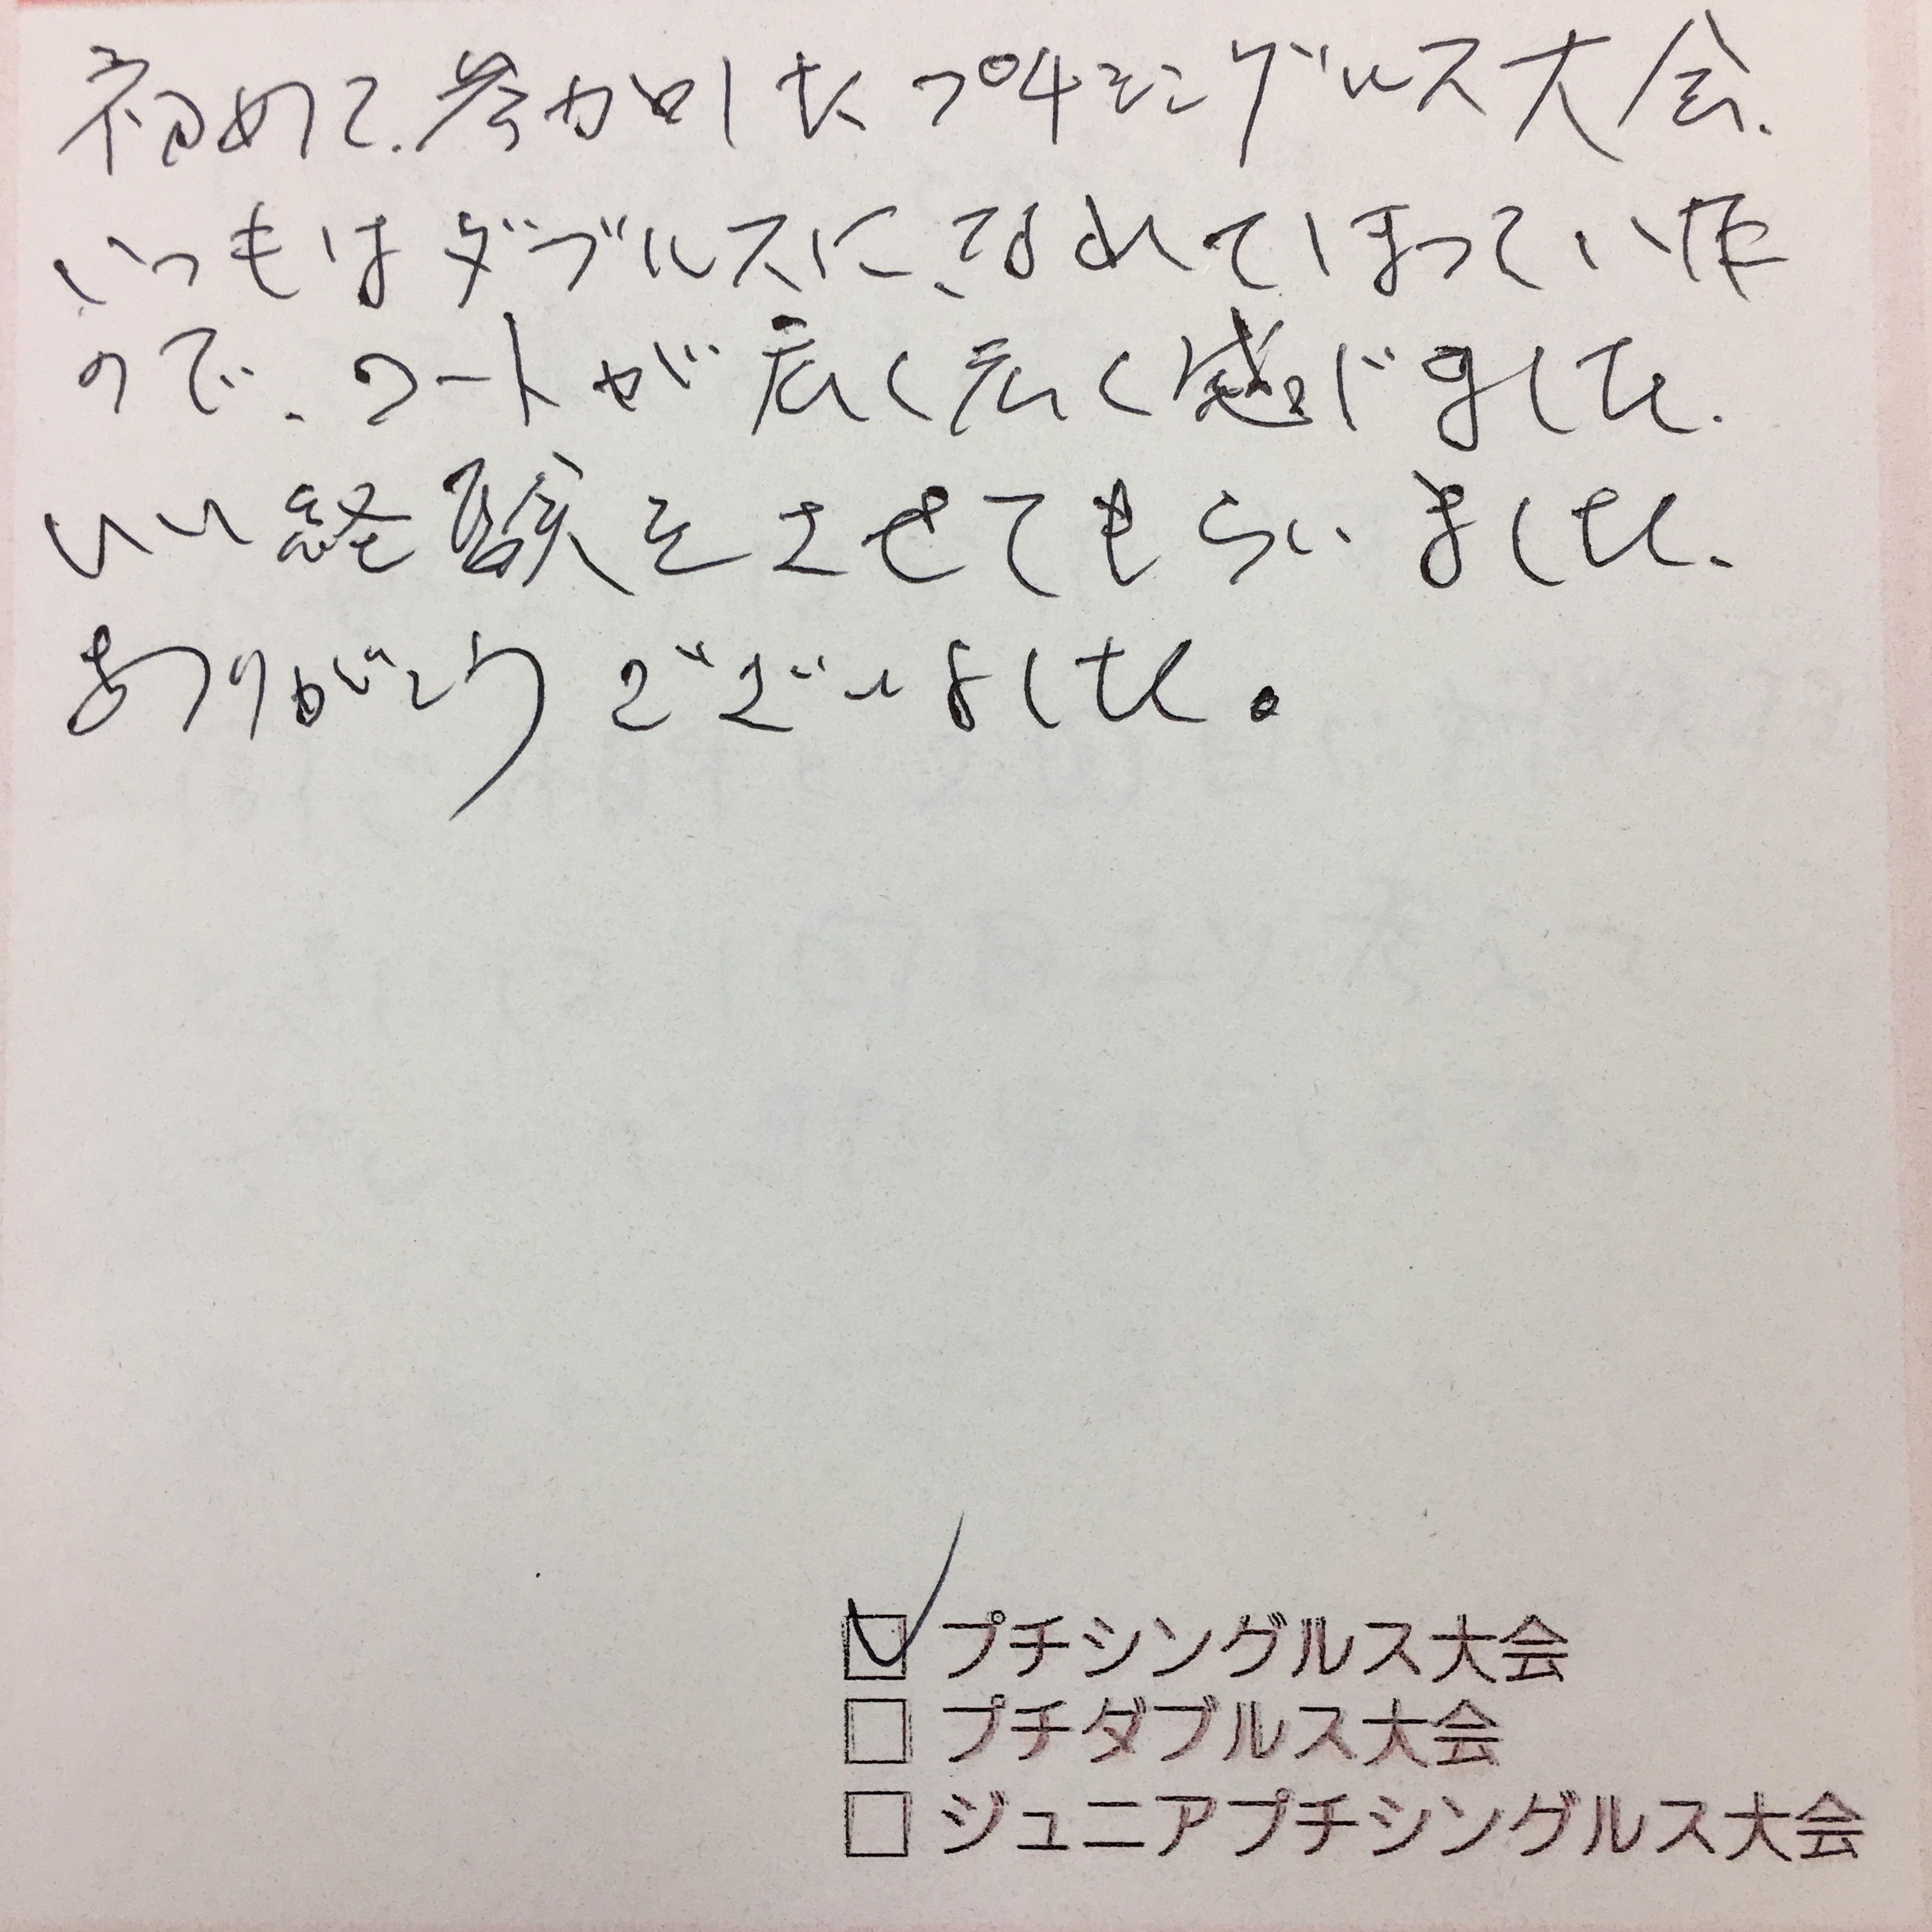 初めて、参加した プチシングルス大会、
いつもはダブルスに、なれてしまっている
ので、コートが広く広く感じました。
いい経験をさせてもらいました、
ありがとうございました。
プチシングルス大会
プチダブルス大会
ジュニアプチシングルス大会